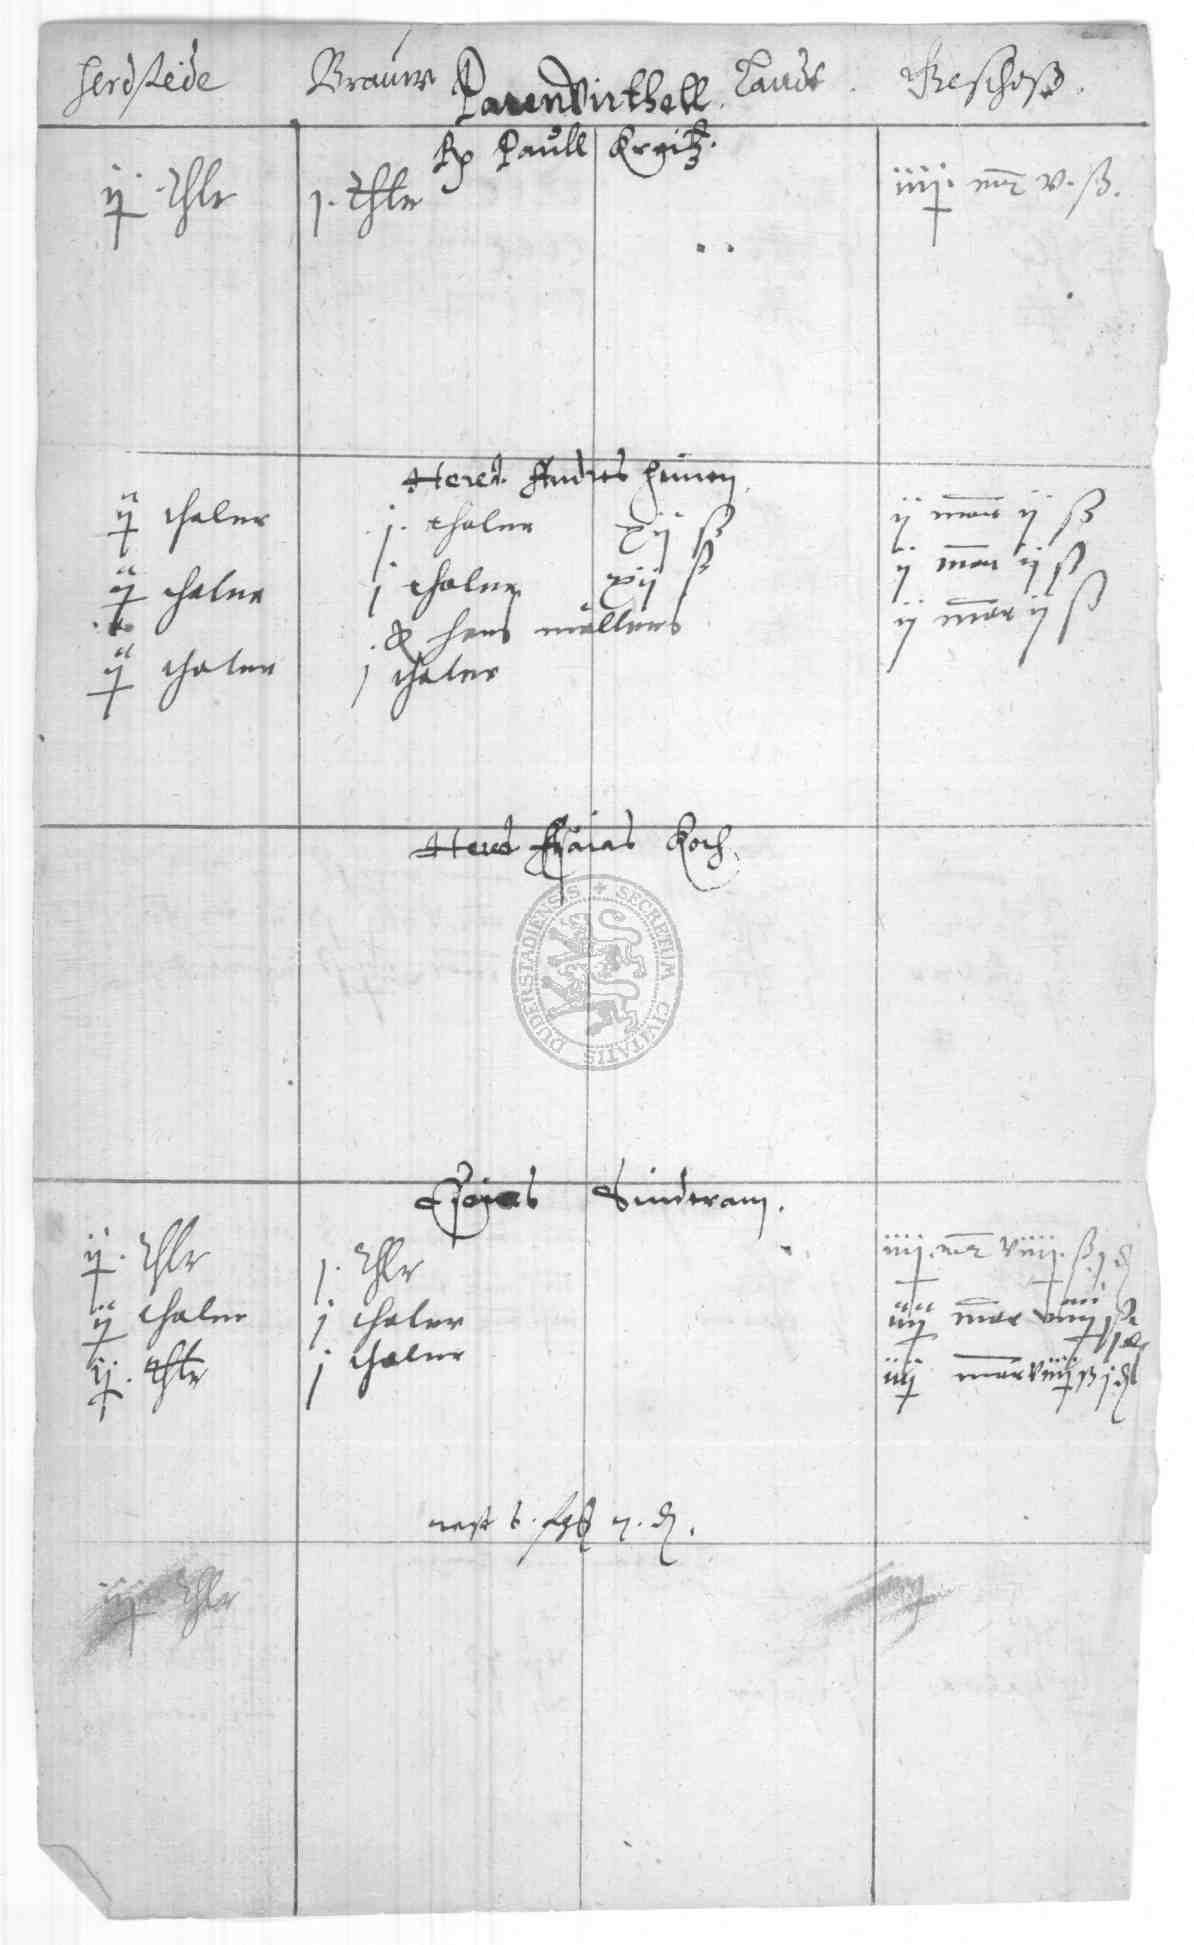 herdstede Brauw Parenvirthell. Landt. Geschoß.
Rp Paull Kreitz.
ij. thlr j. thlr iiij. mr v. ß.
Hered. Andres
ij thaler j. thaler xij ß ij mar ij ß
ij thaler j thaler xij ß ij mar ij ß
hans möllers ij mar ij ß
ij thaler j thaler
Hered Esaias Koch.
SECRETUM CIVITATIS DUDERSTADIENSIS
Esaias Sinderam.
ij. thlr j. thlr iiij. mr viiij. ß. j ₰
ij thaler j thaler iiij mar viiij ß j ₰
ij. thlr j thaler iiij mar viiij ß j ₰
rest
iij thlr